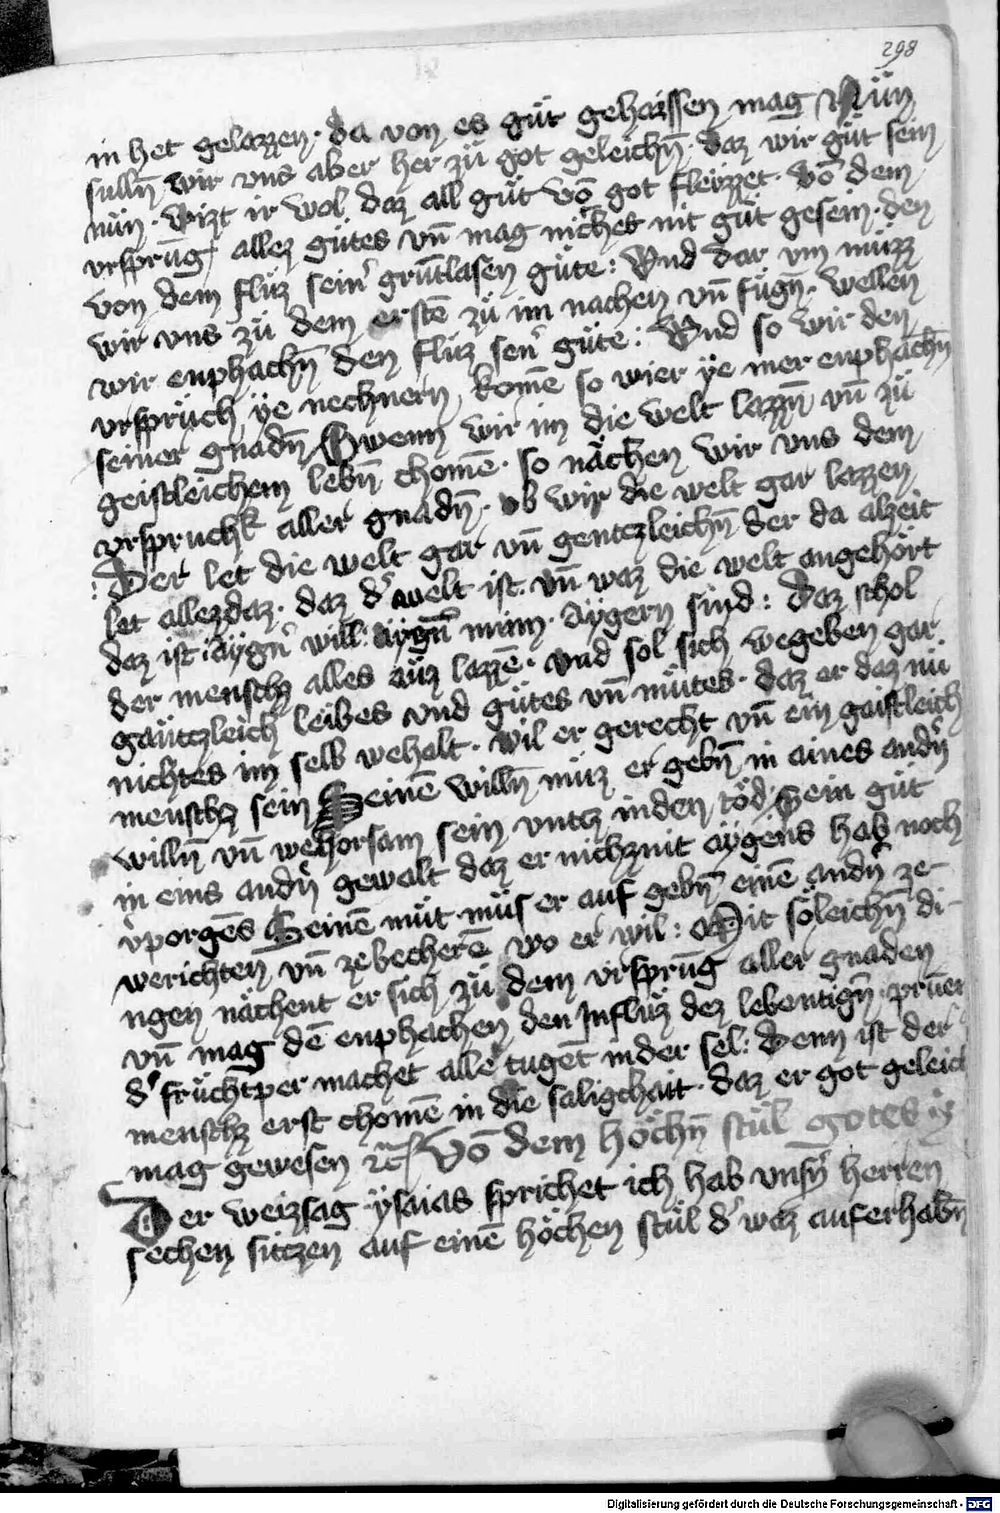 298
in het gelazzen · da von es güt gehaissen mag Nün
sulln̄ wir vns aber her zü got geleichn̄ · daz wir güt sein
nün · Wizt ir wol daz all güt vō got fleizzet · vō dem
vrsprūg allez gütes vn̄ mag nichtes nit güt gesein · den
von dem fluz sein' grūtlasen güte : Vnd dar vm müzz
wir vns zü dem erstē zü im nachen vn̄ fügn̄ · wellen
wir enphachn̄ den fluz sen' güte : Vnd so wir den
vrsprüch ÿe nechnern komē so wier ÿe mer enphachn̄
seiner gnadn̄ Swenn wir im die welt lazzn̄ vn̄ zü
geistleichem lebn̄ chomē · so nächen wir vns dem
vrspruchk aller gnadn̄ · ob wir die welt gar lazzen
Der let die welt gar vn̄ gentczleichn̄ der da alzeit
let allez daz · daz d' welt ist · vn̄ waz die welt angehört
daz ist · äÿgn' will · äÿgn̄ minn · äÿgern sind : Daz schol
der menschz alles aüz lazzē · vnd sol sich wegeben gar
gäntczleich leibes vnd gütes vn̄ mütes · daz er daz nü
nichtes im selb wehalt · wil er gerecht vn̄ ein gaistleich
menschz sein Seinē willn̄ müz er gebn̄ in aines andn̄
willn̄ vn̄ wehorsam sein vntz in den töd Sein güt
in eins andn̄ gewalt daz er nichz nit äÿgens hab noch
v'porgēs Seinē müt müs er auf gebn̄ einē andn̄ ze-
werichten vn̄ zebecherē wo er wil : Mit söleichn̄ di-
ngen nächent er sich zü dem vrsprūg aller gnaden
vn̄ mag dē enphachen den Influz dez lebentign̄ prüen
d' früchtper machet alle tugēt in der sel : Denn ist der
menschz erst chomē in die saligchait · daz er got geleich
mag gewesen Vō dem höchn̄ stül gotes
Der weizsag ÿsaias sprichet ich hab vnsn̄ herren
sechen sitczen auf einē höchen stül d' waz auf erhabn̄
Digitalisierung gefördert durch die Deutsche Forschungsgemeinschaft - DFG